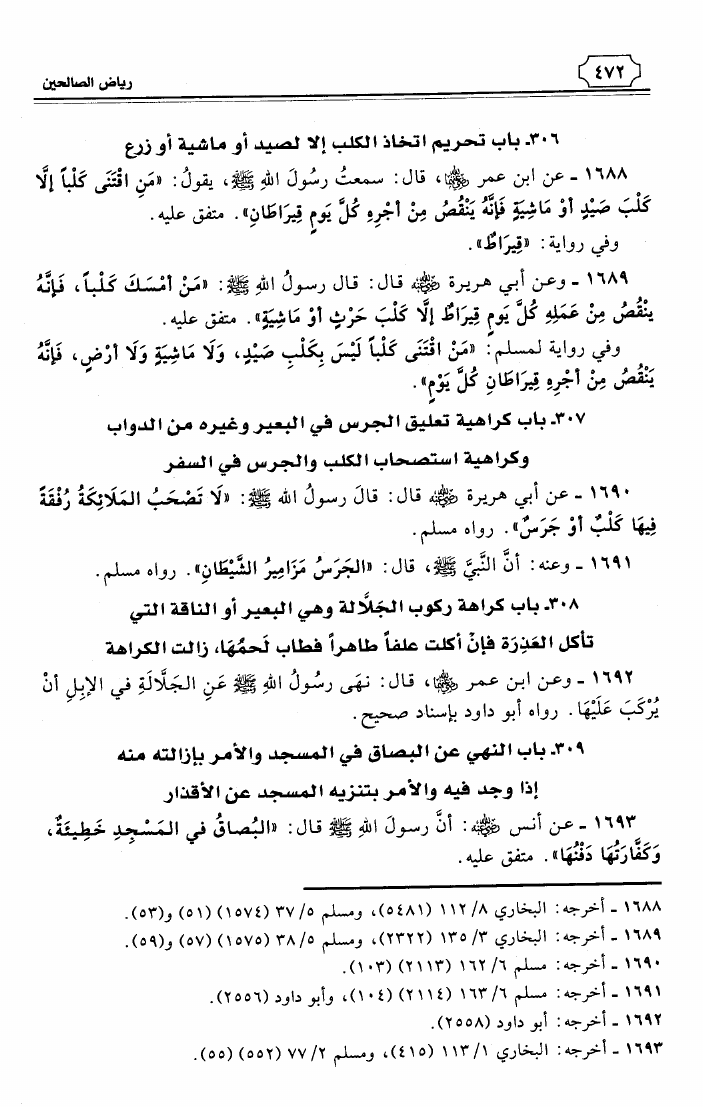 ٤٧٢
رياض الصالحين
٣٠٦ـ باب تحريم اتخاذ الكلب إلا لصيد أو ماشية أو زرع
١٦٨٨ ـ عن ابن عمر رضي الله عنهما، قال: سمعتُ رسُولَ اللهِ ﷺ، يقولُ: «مَنِ اقْتَنَى كَلْباً إلَّا
كَلْبَ صَيْدٍ أوْ مَاشِيَةٍ فَإنَّهُ يَنْقُصُ مِنْ أجْرِهِ كُلَّ يَومٍ قِيرَاطَانِ». متفق عليه.
وفي رواية: «قِيرَاطٌ».
١٦٨٩ ـ وعن أبي هريرة رضي الله عنه قال: قال رسولُ اللهِ ﷺ: «مَنْ أمْسَكَ كَلْباً، فَإنَّهُ
ينْقُصُ مِنْ عَمَلِهِ كُلَّ يَومٍ قِيرَاطٌ إلَّا كَلْبَ حَرْثٍ أوْ مَاشِيَةٍ». متفق عليه.
وفي رواية لمسلم: «مَنْ اقْتَنَى كَلْباً لَيْسَ بِكَلْبِ صَيْدٍ، وَلَا مَاشِيَةٍ وَلَا أرْضٍ، فَإنَّهُ
يَنْقُصُ مِنْ أجْرِهِ قِيرَاطَانِ كُلَّ يَوْمٍ».
٣٠٧ـ باب كراهية تعليق الجرس في البعير وغيره من الدواب
وكراهية استصحاب الكلب والجرس في السفر
١٦٩٠ ـ عن أبي هريرة رضي الله عنه قال: قالَ رسولُ الله ﷺ: «لَا تَصْحَبُ المَلَائِكَةُ رُفْقَةً
فِيهَا كَلْبٌ أوْ جَرَسٌ». رواه مسلم.
١٦٩١ ـ وعنه: أنَّ النَّبيَّ ﷺ، قال: «الجَرَسُ مَزَامِيرُ الشَّيْطَانِ». رواه مسلم.
٣٠٨ـ باب كراهة ركوب الجَلَّالة وهي البعير أو الناقة التي
تأكل العَذِرَة فإنْ أكلت علفاً طاهراً فطاب لَحمُهَا، زالت الكراهة
١٦٩٢ ـ وعن ابن عمر رضي الله عنهما، قال: نهَى رسُولُ اللهِ ﷺ عَنِ الجَلَّالَةِ في الإبِلِ أنْ
يُرْكَبَ عَلَيْهَا. رواه أبو داود بإسناد صحيح.
٣٠٩ـ باب النهي عن البصاق في المسجد والأمر بإزالته منه
إذا وجد فيه والأمر بتنزيه المسجد عن الأقذار
١٦٩٣ ـ عن أنس رضي الله عنه: أنَّ رسولَ اللهِ ﷺ قال: «البُصاقُ في المَسْجِدِ خَطِيئَةٌ،
وَكَفَّارَتُهَا دَفْنُهَا». متفق عليه.
١٦٨٨ ـ أخرجه: البخاري ٨/ ١١٢ (٥٤٨١)، ومسلم ٥/ ٣٧ (١٥٧٤) (٥١) و(٥٣).
١٦٨٩ ـ أخرجه: البخاري ٣/ ١٣٥ (٢٣٢٢)، ومسلم ٥/ ٣٨ (١٥٧٥) (٥٧) و(٥٩).
١٦٩٠ ـ أخرجه: مسلم ٦/ ١٦٢ (٢١١٣) (١٠٣).
١٦٩١ ـ أخرجه: مسلم ٦/ ١٦٣ (٢١١٤) (١٠٤)، وأبو داود (٢٥٥٦).
١٦٩٢ ـ أخرجه: أبو داود (٢٥٥٨).
١٦٩٣ ـ أخرجه: البخاري ١/ ١١٣ (٤١٥)، ومسلم ٢/ ٧٧ (٥٥٢) (٥٥).